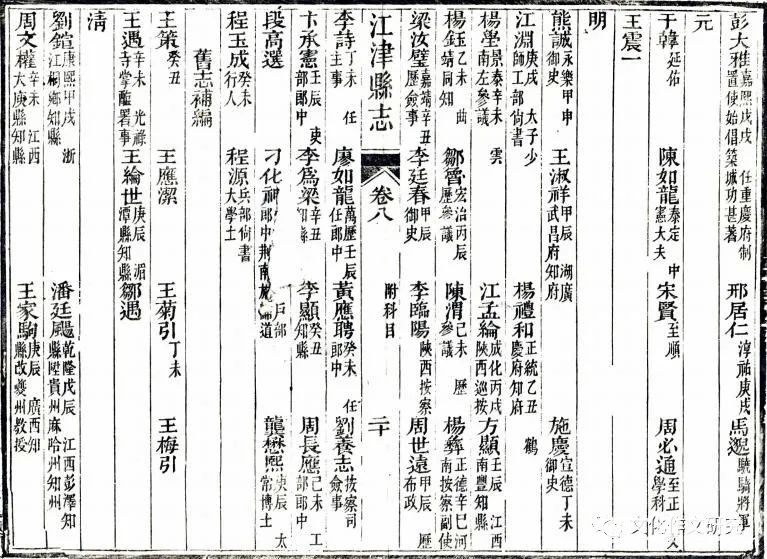 彭大雅 嘉熙戊戌 任重慶府制置使始倡築城功甚著 邢居仁 淳祐庚戌 馬邈 驍騎將軍
元
于韓 延佑 陳如龍 泰定 中憲大夫 宋賢 至順 周必通 至正 學科
王震一
明
熊誠 永樂甲申御史 王淑祥 甲辰 湖廣武昌府知府 施慶 宣德丁未御史
江淵 庚戌 太子少師工部尚書 楊禮和 正統乙丑 鶴慶府知府
楊壆 景泰辛未 雲南左參議 江孟綸 成化丙戌陝西巡按 方顯 壬辰 江西南豐知縣
楊鈺 乙未 曲靖同知 鄒魯 宏治丙辰歷參議 陳渭 己未 歷參議 楊彝 正德辛巳河南按察副使
梁汝璧 嘉靖辛丑歷僉事 李廷春 甲辰御史 李臨陽 陝西按察 周世遠 甲辰 歷布政
江津縣志 卷八 附科目 二十
李詩 丁未 任主事 廖如龍 萬歷壬辰任郎中 黃應聘 癸未 任郎中 劉養志 按察司僉事
卞承憲 壬辰 吏部郎中 李為梁 辛丑知縣 李顯 癸丑知縣 周長應 己未 工部郎中
段高選 刁化神 戶部郎中荊南施道 龔懋熙 庚辰 太常博士
程玉成 癸未行人 程源 兵部尚書大學士
舊志補編
王策 癸丑 王應潔 王菊引 丁未 王梅引
王遇 辛未 光祿寺掌醢署事 王綸世 庚辰 湄潭縣知縣 鄒遇
清
劉鍹 康熙甲戌 浙江桐鄉知縣 潘廷颺 乾隆戊辰 江西彭澤知縣陞貴州麻哈州知州
周文權 辛未 江西大庾縣知縣 王家駒 庚辰 廣西知縣改夔州教授